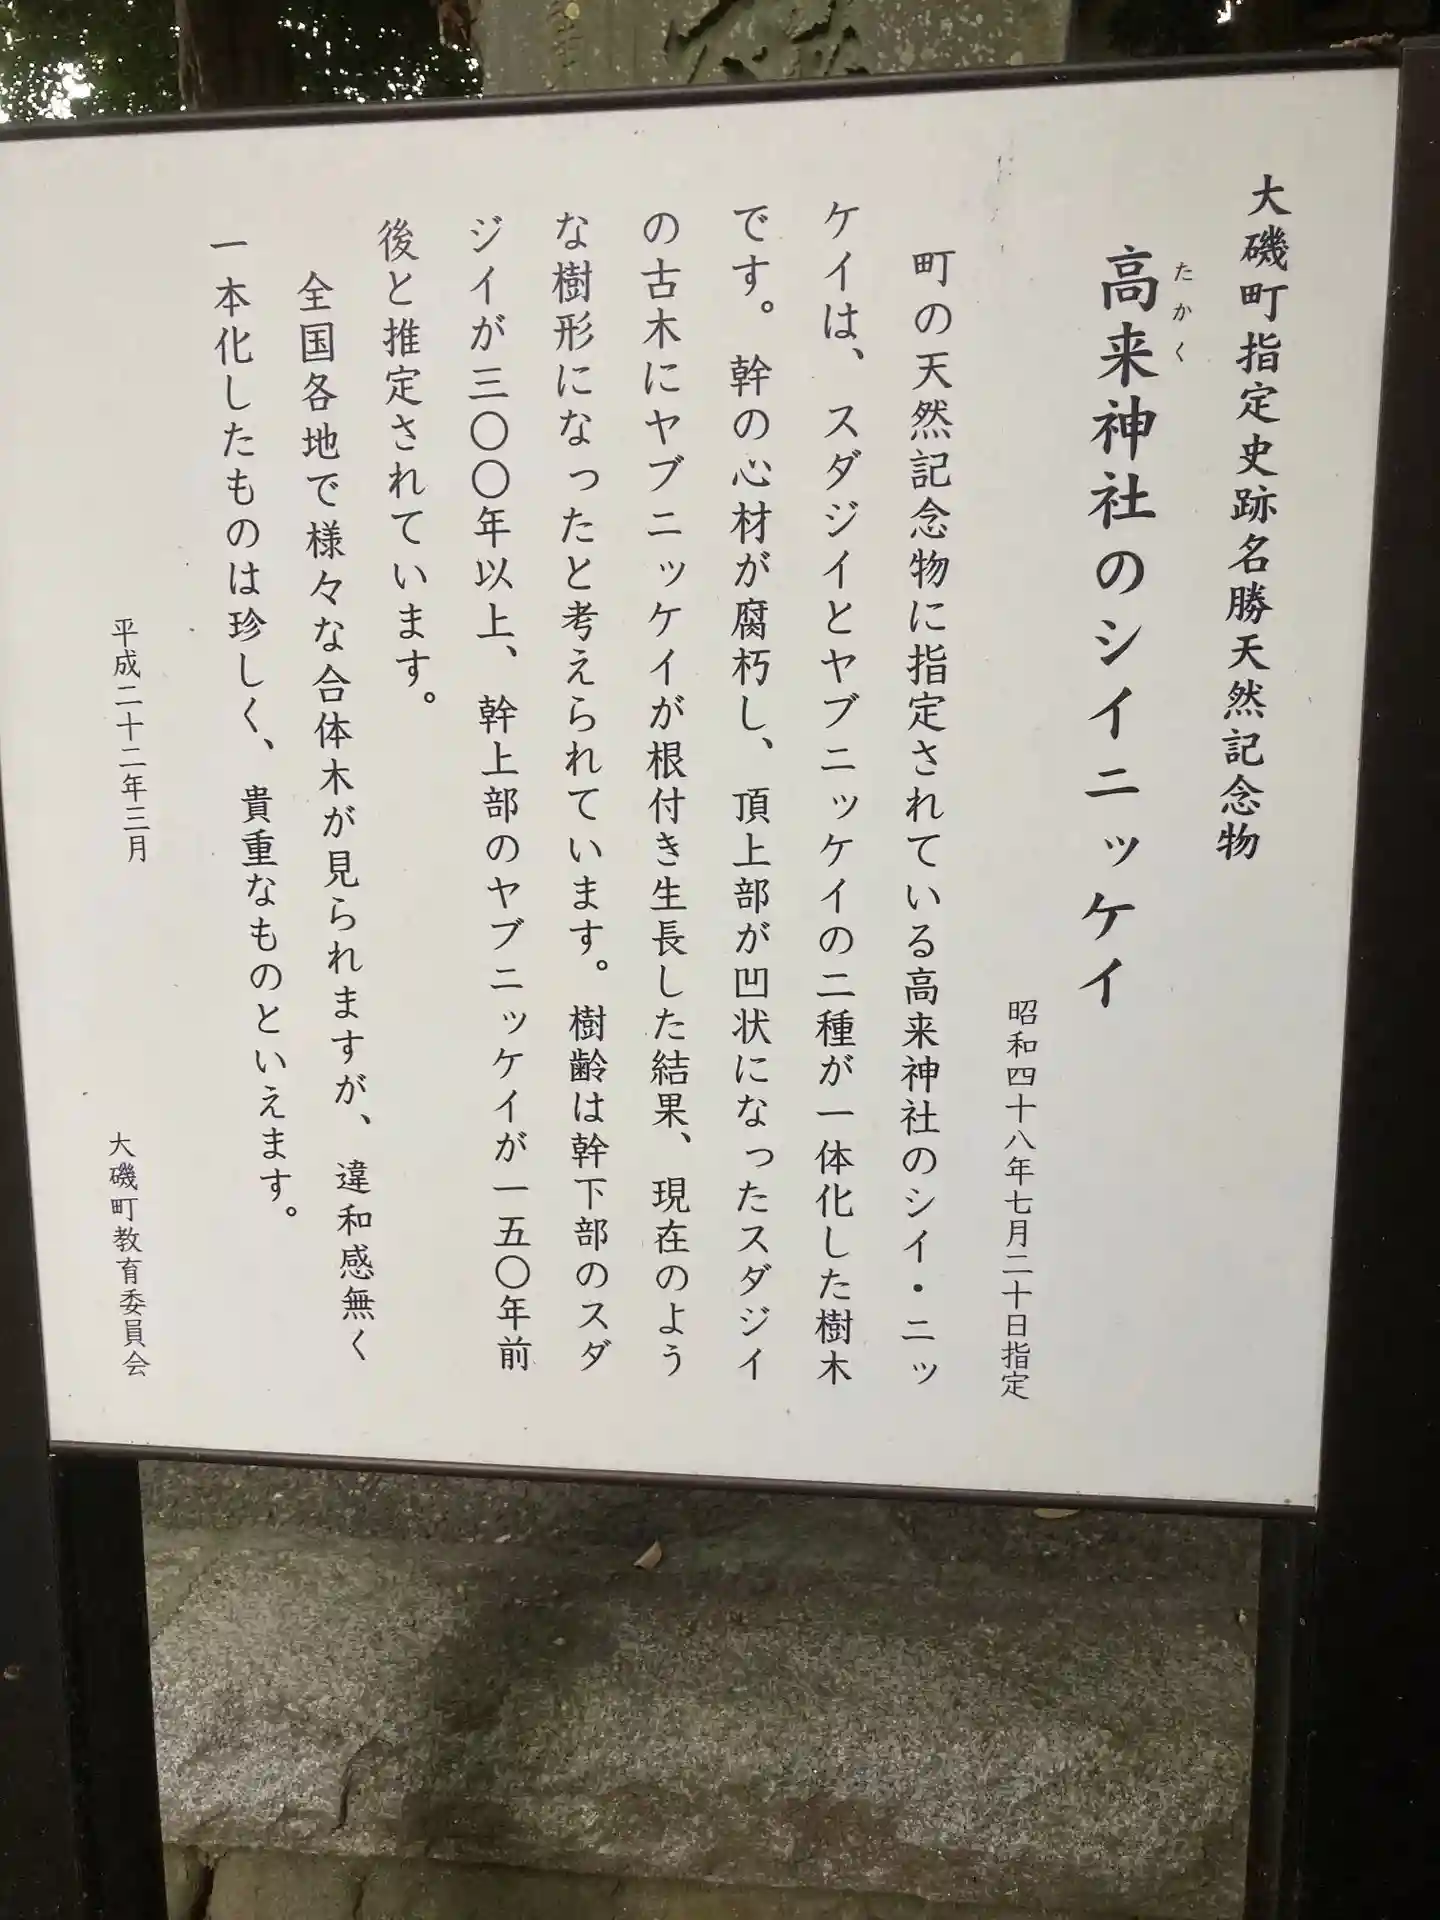 大磯町指定史跡名勝天然記念物
高来神社のシイニッケイ
たかく
昭和四十八年七月二十日指定
町の天然記念物に指定されている高来神社のシイ・ニッ
ケイは、スダジイとヤブニッケイの二種が一体化した樹木
です。幹の心材が腐朽し、頂上部が凹状になったスダジイ
の古木にヤブニッケイが根付き生長した結果、現在のよう
な樹形になったと考えられています。樹齢は幹下部のスダ
ジイが三〇〇年以上、幹上部のヤブニッケイが一五〇年前
後と推定されています。
全国各地で様々な合体木が見られますが、違和感無く
一本化したものは珍しく、貴重なものといえます。
平成二十二年三月
大磯町教育委員会